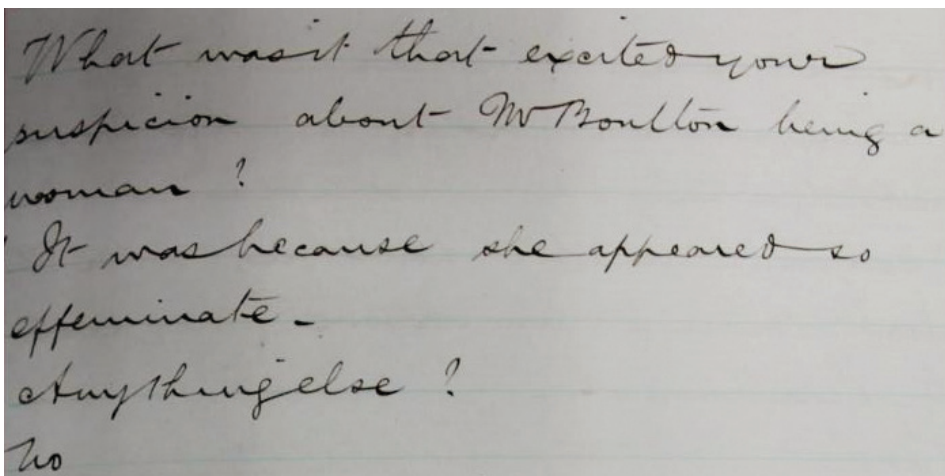 What was it that excited your
suspicion about Mr Boulton being a
woman ?
It was because she appeared so
effeminate -
Anything else ?
No